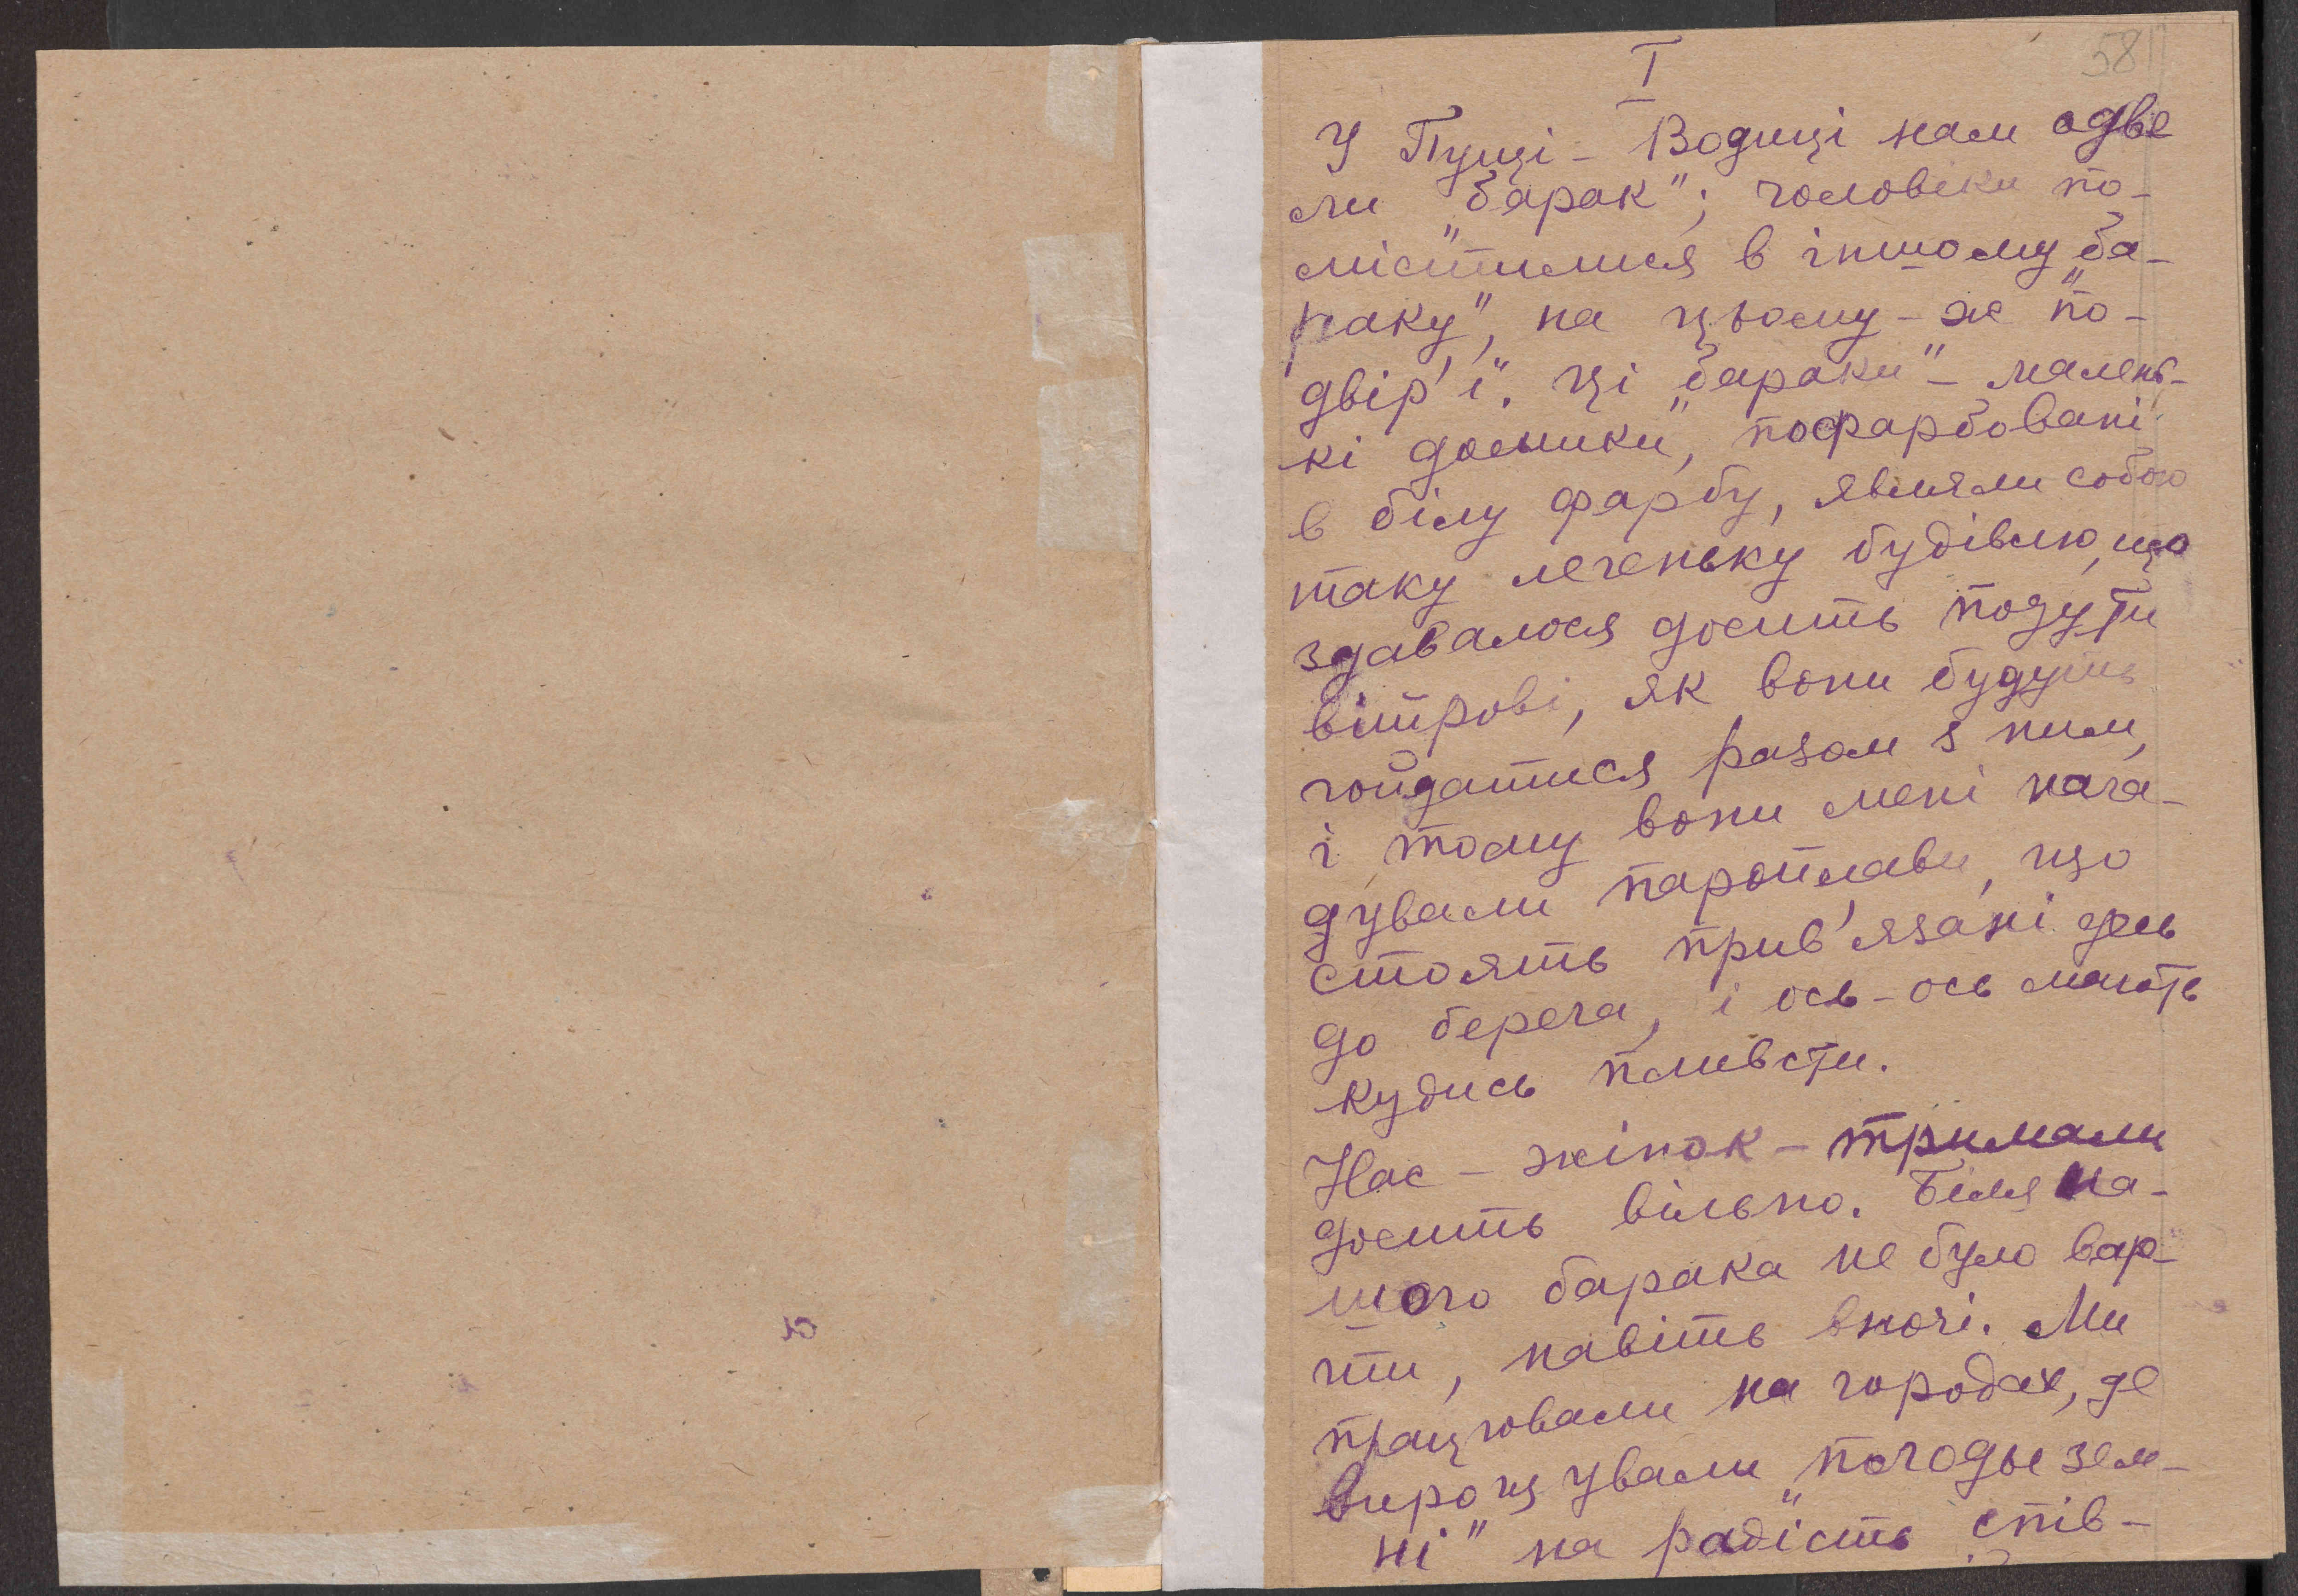 58
I
У Пущі-Водиці нам одве
ли „барак"; чоловіки по-
містилися в іншому „ба-
раку", на цьому-ж по-
двір'ї. Ці „бараки" - малень-
кі домики, пофарбовані
в білу фарбу, являли собою
таку легеньку будівлю, що
здавалося досить подути
вітрові, як вони будуть
гойдатися разом з ним,
і тому вони мені нага-
дували пароплави, що
стоять прив'язані десь
до берега, і ось-ось мають
кудись пливсти.
Нас - жінок - тримали
досить вільно. Біля на-
шого барака не було вар-
ти, навіть вночі. Ми
працювали на городах, де
вирощували „погоди зем-
ні" на радість спів-